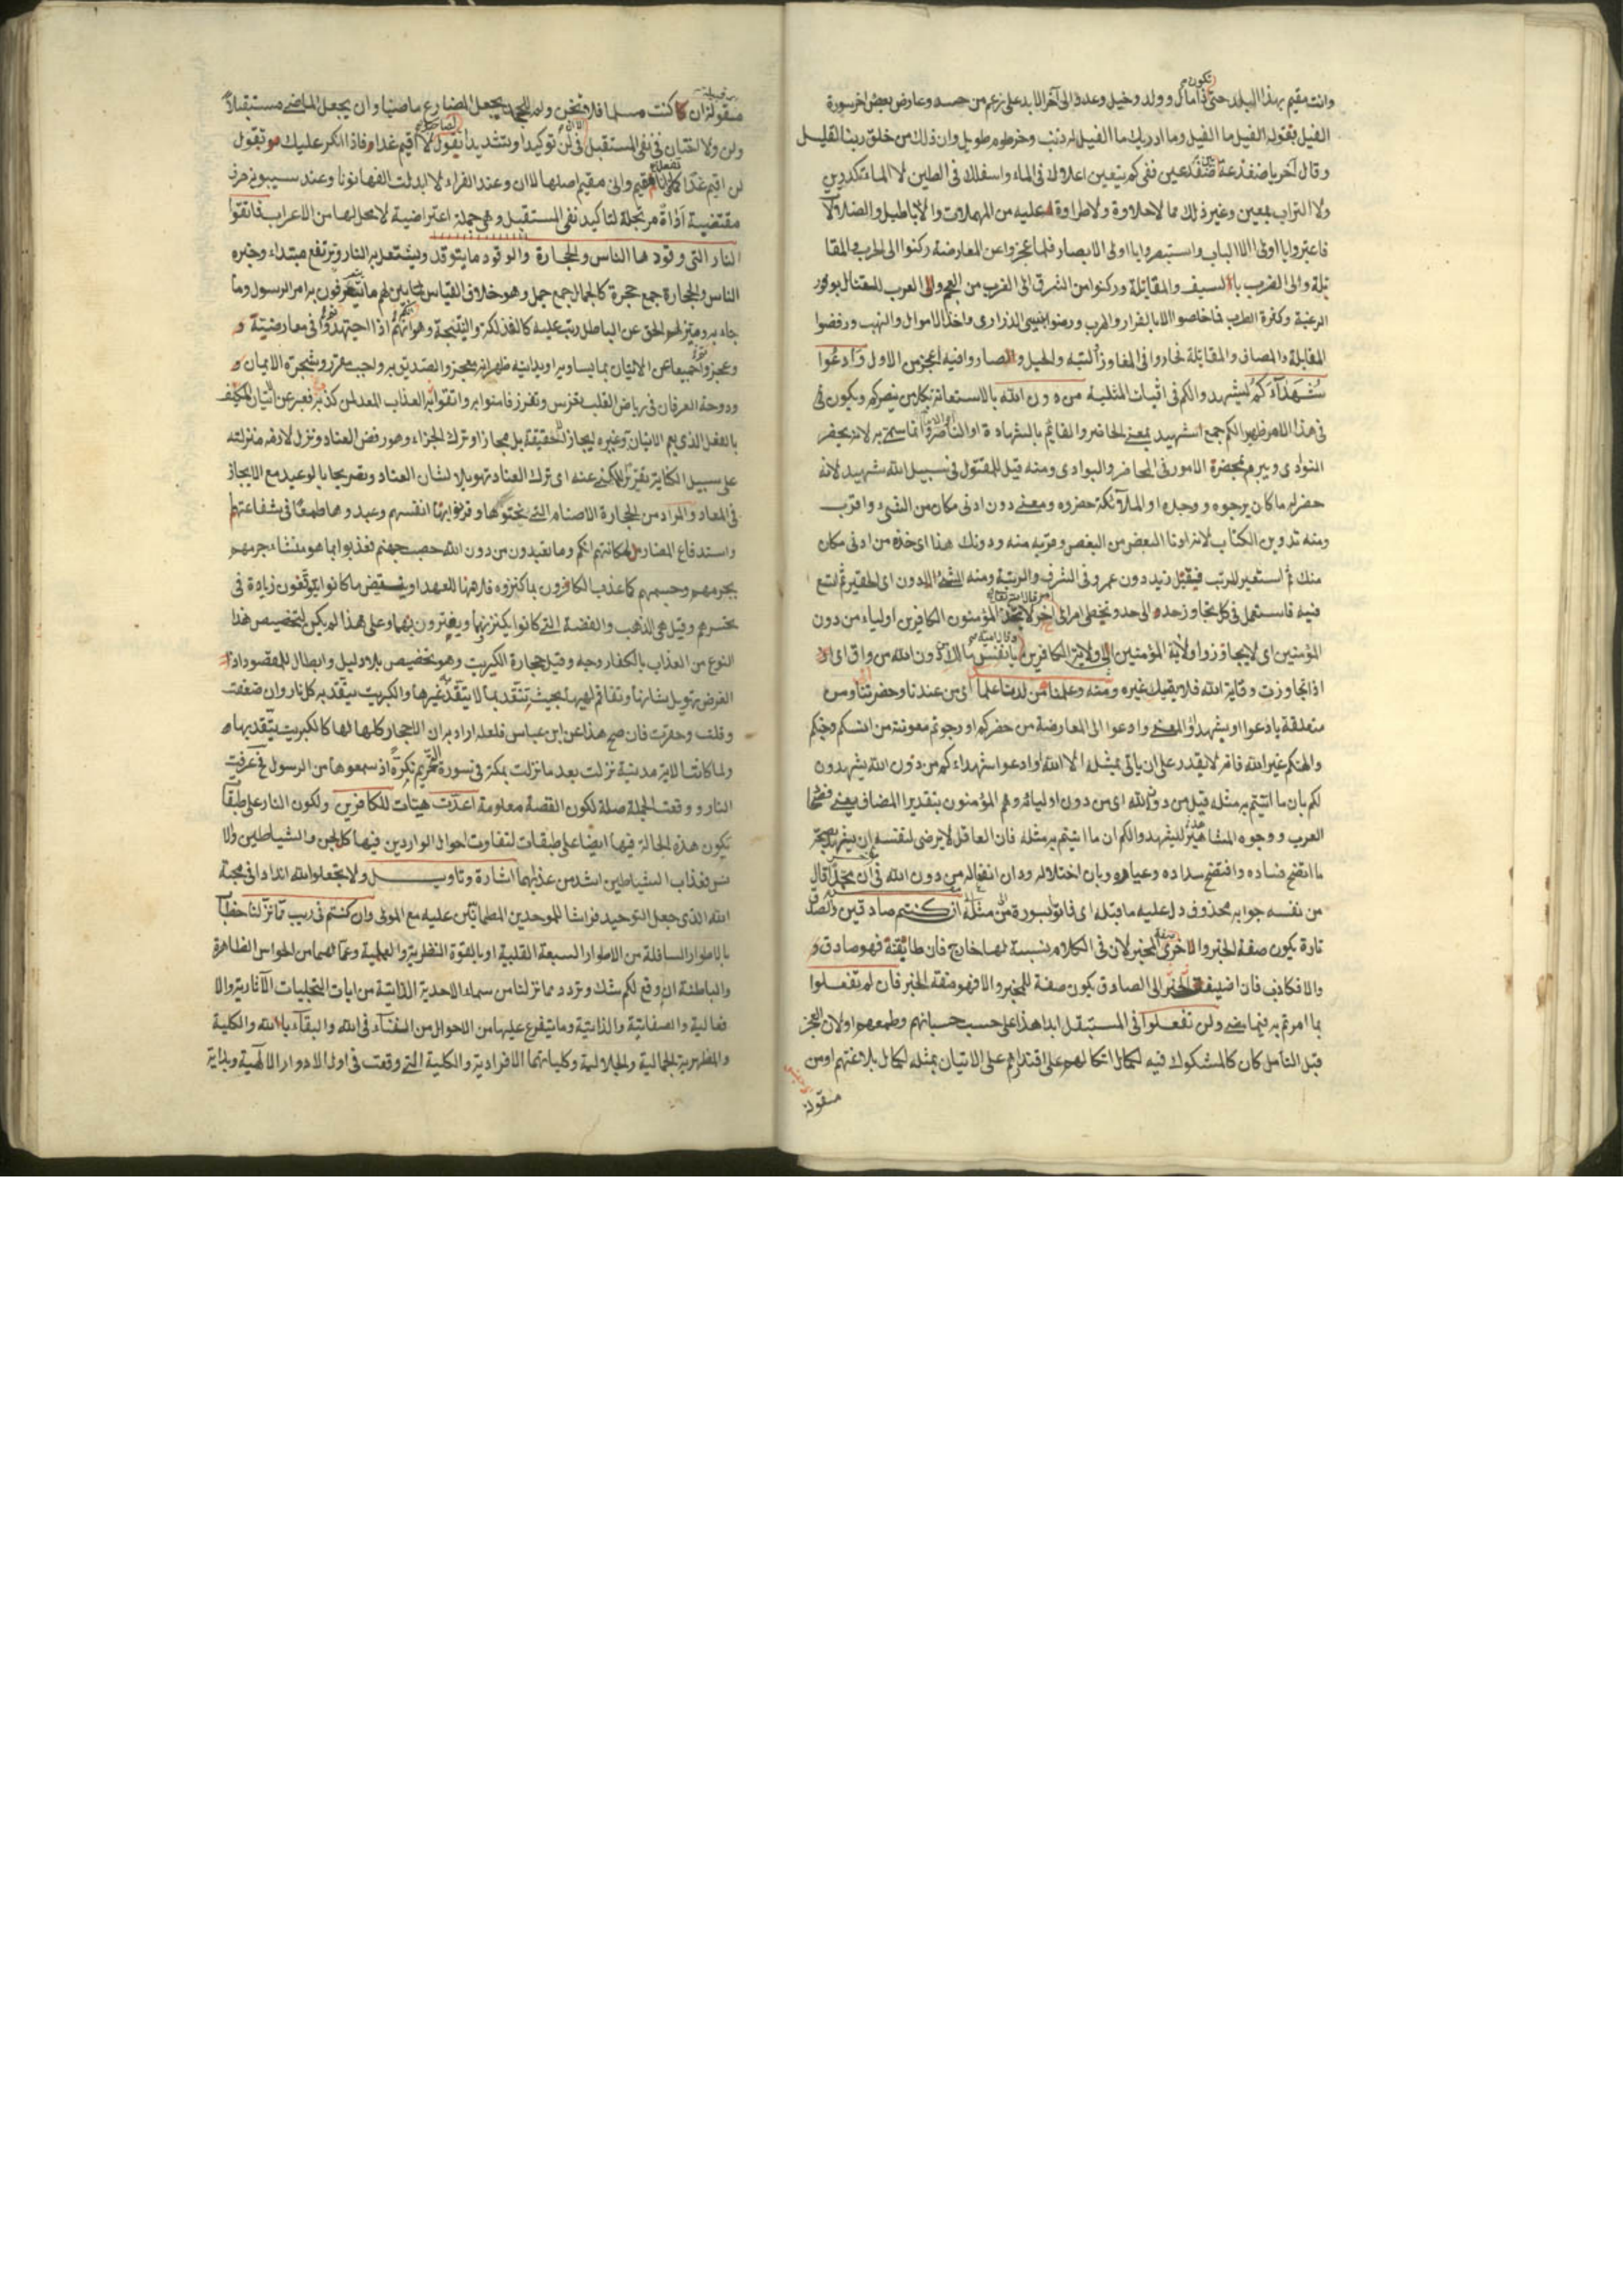 وانت مقيم بهذا البلد حتى تكون ذا مال وولد وخيل وعدد الى آخر الابد على زعم من حسه وعارض بعض اخر سورة
الفيل بقوله الفيل ما الفيل وما ادريك ما الفيل له ذنب وخرطوم طويل وان ذلك من خلق ربنا لقليل
وقال آخر يا ضفدعة بنت ضفدعين نقي كم تنقين اعلاك في الماء واسفلك في الطين لا الماء تكدرين
ولا التراب بمعين وغير ذلك مما لا حلاوة ولا طراوة عليه من المهملات والاباطيل والضلالات
فاعتبروا يا اولى الالباب واستبصروا يا اولى الابصار فلما عجزوا عن المعارضة ركنوا الى الحرب والمقا
تلة والى الضرب بالسيف والمقاتلة وركنوا من الشرق الى الغرب من العجم والى العرب للمقتال بوفور
الرغبة وكثرة الطرب فما خلصوا الا بالفرار والهرب ورضوا بسبي الذراري واخذ الاموال والنهب ورفضوا
المقابلة والمصاف والمقاتلة فحاروا في المفاوز التيه والحيل وصاروا فيه اعجز من الاول وَادْعُوا
شُهَدَآءَكُمْ ليشهدوا لكم في اثبات المثلية من دون الله بالاستعانة بكل من ينصركم ويكون في
في هذا الامر ظهيرا لكم جمع شهيد بمعنى الحاضر والقائم بالشهادة او الناصر وانما سمي به لانه يحضر
النوادى ويبرم بحضرة الامور في المحاضر والبوادى ومنه قيل للمقتول في سبيل الله شهيد لانه
حضر ما كان يرجوه ووجده او الملآئكة حضروه ومعنى دون ادنى مكان من الشيء واقرب
ومنه تدوين الكتاب لانه ادناء البعض من البعض وقربه منه ودونك هذا اى خذه من ادنى مكان
منك ثم استعير للرتب فيقال زيد دون عمرو في الشرف والرتبة ومنه الشيء الدون اى الحقير ثم اتسع
فيه فاستعمل في كل تجاوز حد الى حد وتخطى امر الى آخر لا يتخذ المؤمنون الكافرين اولياء من دون
المؤمنين اى لا يتجاوزوا ولاية المؤمنين الى ولاية الكافرين يا نفس مالك دون الله من واق اى
اذا تجاوزت وقاية الله فلا يقيك غيره ومنه وعلمناه من لدنا علما اى من عندنا وحضرتنا ومن
متعلقة بادعوا او بشهداء والمعنى وادعوا الى المعارضة من حضركم او رجوتم معونته من انسكم وجنكم
والهتكم غير الله فانه لا يقدر على ان يأتي بمثله الا الله او ادعوا شهداءكم من دون الله يشهدون
لكم بان ما اتيتم به مثله قيل من دون الله اى من دون اوليائه وهم المؤمنون بتقدير المضاف يعنى فصحاء
العرب ووجوه المشاهير ليشهدوا لكم ان ما اتيتم به مثله فان العاقل لا يرضى لنفسه ان يشهد بصحة
ما اتضح فساده وبان اختلاله من دون الله في ان محمدا قال
من نفسه جوابه محذوف دل عليه ما قبله اى فأتوا بسورة من مثله ان كنتم صادقين والصدق
تارة يكون صفة الخبر والاخرى المخبر لان في الكلام نسبة لها خارج فان طابقته فهو صادق و
والا فكاذب فان اضيف الخبر الى الصادق يكون صفة للمخبر والا فهو صفة الخبر فان لم تفعلوا
بما امرتم به فيما مضى ولن تفعلوا في المستقبل ابدا هذا على حسب حسبانهم وطمعهم او لان العجز
قبل التأمل كان كالمشكوك فيه لكمال اتكالهم على اقتدارهم على الاتيان بمثله لكمال بلاغتهم او من
مقولة
مقولة ان كنت مسلما فلا تخن ولم للجحد يجعل المضارع ماضيا وان يجعل الماضي مستقبلا
ولن ولا اختان في نفى المستقبل الا ان في لن توكيدا وتشديدا تقول لصاحبك لا اقيم غدا فاذا انكر عليك تقول
لن اقيم غدا كما تفعله في انا مقيم وانى مقيم اصلها لا ان وعند الفراء لا ابدلت الفها نونا وعند سيبويه حرف
مقتضبة اداة مرتجلة لتأكيد نفى المستقبل وهي جملة اعتراضية لا محل لها من الاعراب فاتقوا
النار التى وقودها الناس والحجارة والوقود ما يتوقد ويشتعل به النار وترتفع مبتداء وخبره
الناس والحجارة جمع حجرة كالجمال جمع جمل وهو خلاف القياس لما بين لهم ما يتعرفون به امر الرسول وما
جاء به وميز لهم الحق عن الباطل رتب عليه كالفذلكة والنتيجة وهو انكم اذا اجتهدتم في معارضته و
وعجزوا جميعا عن الاتيان بما يساويه او يدانيه ظهر انه معجز والتصديق به واجب وشجرة الايمان و
ودوحة العرفان في رياض القلب فآمنوا به واتقوا العذاب المعد لمن كذب فعبر عن اتيان المكيف
بالفعل الذى يعم الاتيان وغيره ايجازا ونزل لازمه منزلته
على سبيل الكناية تقريرا للمكنى عنه اى ترك العناد تهويلا لشان العناد وتصريحا بالوعيد مع الايجاز
في المعاد والمراد من الحجارة الاصنام التى نحتوها وقرنوا بها انفسهم وعبدوها طمعا في شفاعتها
واستدفاع المضار بمكانتهم انكم وما تعبدون من دون الله حصب جهنم فعذبوا بما هو منشاء جرمهم
كما عذب الكافرون بما كنزوه او بنقيض ما كانوا يتوقعون زيادة في
تحسرهم وقيل هى الذهب والفضة التى كانوا يكنزونها ويغترون بها وعلى هذا لم يكن لتخصيص هذا
النوع من العذاب بالكفار وجه وقيل حجارة الكبريت وهو تخصيص بلا دليل وابطال للمقصود اذ
الغرض تهويل شانها وتفاقم لهبها بحيث تتقد بما لا يتقد به غيرها والكبريت يتقد به كل نار وان ضعفت
وقلت وحقرت فان صح هذا عن ابن عباس فلعله اراد به ان الاحجار كلها لها كالكبريت يتقد بها و
ولما كانت الاية مدنية نزلت بعد ما نزلت بمكة في سورة التحريم نكرة اذ سمعوها من الرسول عرفت
النار ووقعت الجملة صلة لكون القصة معلومة اعدت هيئت للكافرين ولكون النار على طبقات
تكون هذه الحجارة فيها ايضا على طبقات لتفاوت احوال الواردين فيها كالجن والشياطين ولا
فعذاب الشياطين اشد من عذابهما اشارة وتاويل ولا تجعلوا لله اندادا في محبة
الله الذى جعل التوحيد فراشا للموحدين المطمئنين عليه مع المولى وان كنتم في ريب مما نزلنا
بالاطوار السافلة من الاطوار السبعة القلبية او بالقوة النظرية والعملية وعمالهما من الحواس الظاهرة
والباطنة ان وقع لكم شك وتردد مما نزلنا من سماء الاحدية الذاتية من ايات التجليات الآثارية والا
فعالية والصفاتية والذاتية وما يتفرع عليها من الاحوال من الفنآء في الله والبقآء بالله والكلية
والمظهرية الجمالية والجلالية وكلياتهما الافرادية والكلية التى وقعت في اول الادوار الالهية وبداية